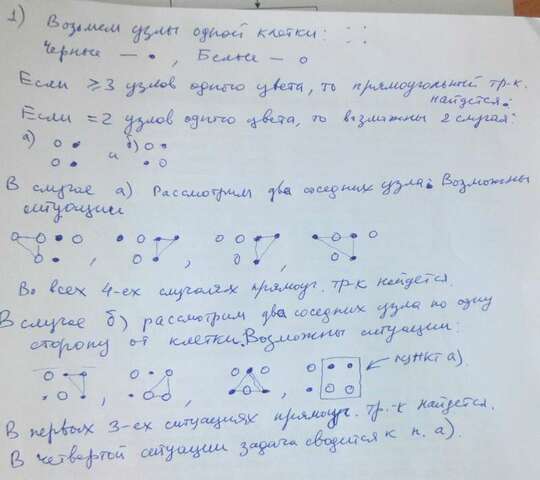 1) Возьмем узлы одной клетки:
Черные — •, Белые — ○
Если ≥3 узлов одного цвета, то прямоугольный тр-к.
найдется.
Если =2 узлов одного цвета, то возможны 2 случая:
а) и б)
В случае а) Рассмотрим два соседних узла. Возможны
ситуации
Во всех 4-ех случаях прямоуг. тр-к найдется.
В случае б) рассмотрим два соседних узла по одну
сторону от клетки. Возможны ситуации:
пункт а).
В первых 3-ех ситуациях прямоуг. тр.-к найдется.
В четвертой ситуации задача сводится к п. а).